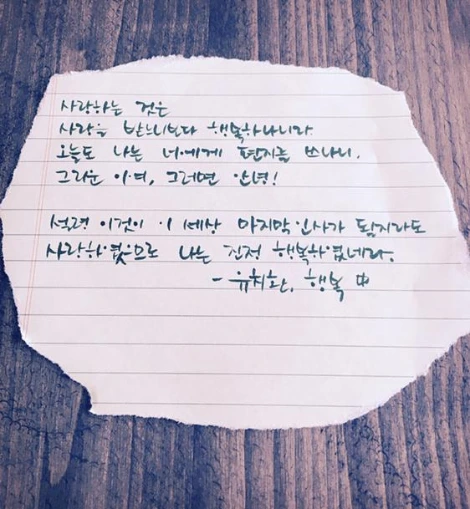 사랑하는 것은
사랑을 받느니보다 행복하나니라
오늘도 나는 너에게 편지를 쓰나니.
그리운 이여, 그러면 안녕!
설령 이것이 이 세상 마지막 인사가 될지라도
사랑하였으므로 나는 진정 행복하였네라.
- 유치환, 행복 中